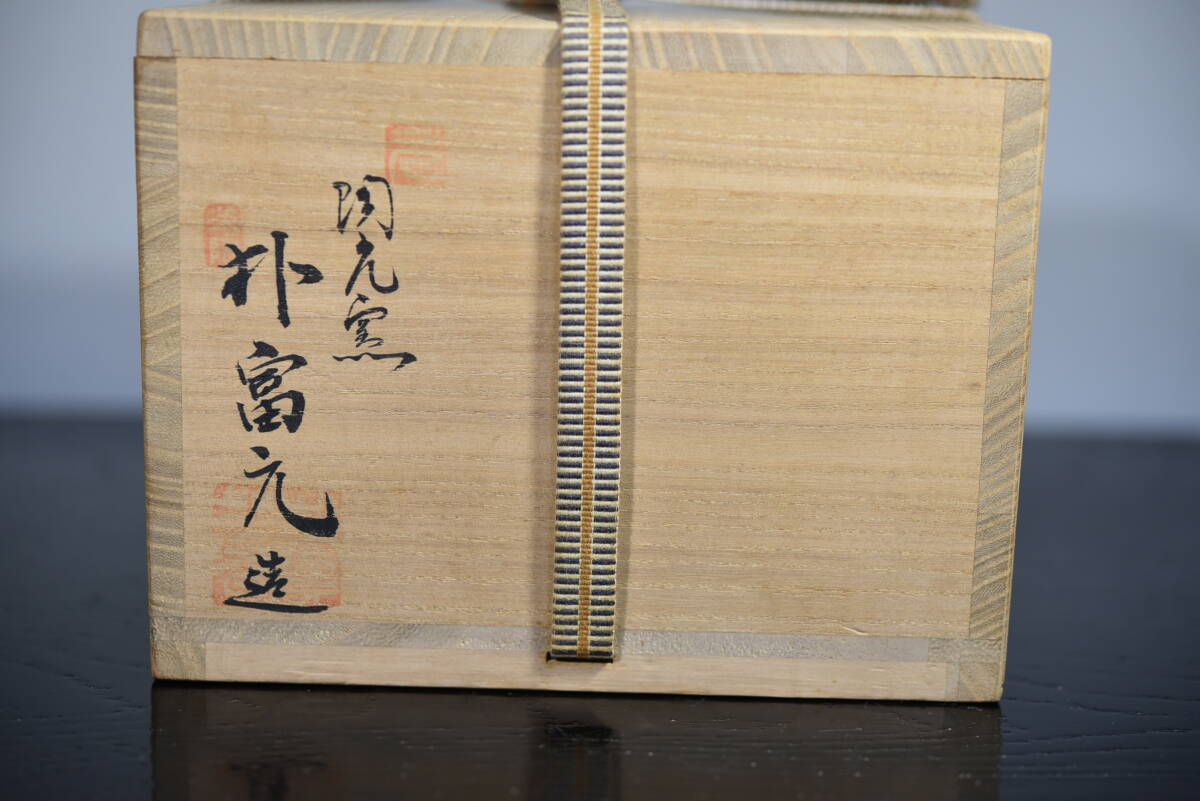 陶元窯
朴富元造